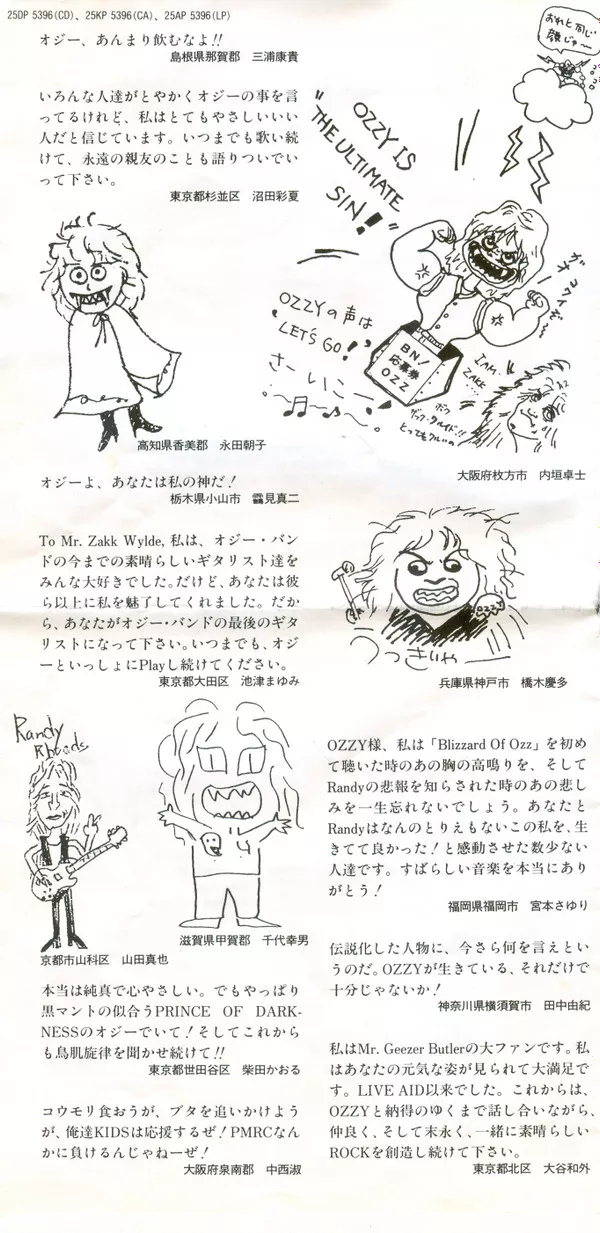 25DP 5396(CD)、25KP 5396(CA)、25AP 5396(LP)
オジー、あんまり飲むなよ!!
島根県那賀郡 三浦康貴
いろんな人達がとやかくオジーの事を言
ってるけれど、私はとてもやさしいいい
人だと信じています。いつまでも歌い続
けて、永遠の親友のことも語りついでい
って下さい。
東京都杉並区 沼田彩夏
高知県香美郡 永田朝子
おれと同じ
顔じゃ〜
OZZY IS
THE ULTIMATE
SIN!
OZZYの声は
LET'S GO!
さーいこー
BN!
応募券
OZZ
I AM
ZAKK
大阪府枚方市 内垣卓士
オジーよ、あなたは私の神だ!
栃木県小山市 見真二
To Mr. Zakk Wylde, 私は、オジー・バン
ドの今までの素晴らしいギタリスト達を
みんな大好きでした。だけど、あなたは彼
ら以上に私を魅了してくれました。だか
ら、あなたがオジー・バンドの最後のギタ
リストになって下さい。いつまでも、オジ
ーといっしょにPlayし続けてください。
東京都大田区 池津まゆみ
OZZY
うっきゃー
兵庫県神戸市 橋木慶多
Randy
Rhoads
京都市山科区 山田真也
滋賀県甲賀郡 千代幸男
本当は純真で心やさしい。でもやっぱり
黒マントの似合うPRINCE OF DARK-
NESSのオジーでいて!そしてこれから
も鳥肌旋律を聞かせ続けて!!
東京都世田谷区 柴田かおる
コウモリ食おうが、ブタを追いかけよう
が、俺達KIDSは応援するぜ!PMRCなん
かに負けるんじゃねーぜ!
大阪府泉南郡 中西淑
OZZY様、私は「Blizzard Of Ozz」を初め
て聴いた時のあの胸の高鳴りを、そして
Randyの悲報を知らされた時のあの悲し
みを一生忘れないでしょう。あなたと
Randyはなんのとりえもないこの私を、生
きてて良かった!と感動させた数少ない
人達です。すばらしい音楽を本当にあり
がとう!
福岡県福岡市 宮本さゆり
伝説化した人物に、今さら何を言えとい
うのだ。OZZYが生きている、それだけで
十分じゃないか!
神奈川県横須賀市 田中由紀
私はMr. Geezer Butlerの大ファンです。私
はあなたの元気な姿が見られて大満足で
す。LIVE AID以来でした。これからは、
OZZYと納得のゆくまで話し合いながら、
仲良く、そして末永く、一緒に素晴らしい
ROCKを創造し続けて下さい。
東京都北区 大谷和外